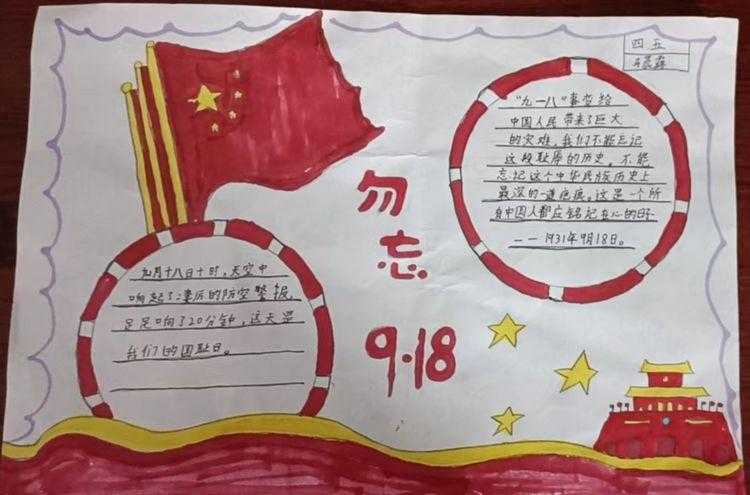 四五
勿
忘
9·18
"九一八"事变给
中国人民带来了巨大
的灾难,我们不能忘记
这段耻辱的历史。不能
忘记这个中华民族历史上
最深的一道伤疤。这是一个所
有中国人都应铭记在心的日子
——1931年9月18日。
九月十八日十时,天空中
响起了凄厉的防空警报,
足足响了20分钟,这天是
我们的国耻日。